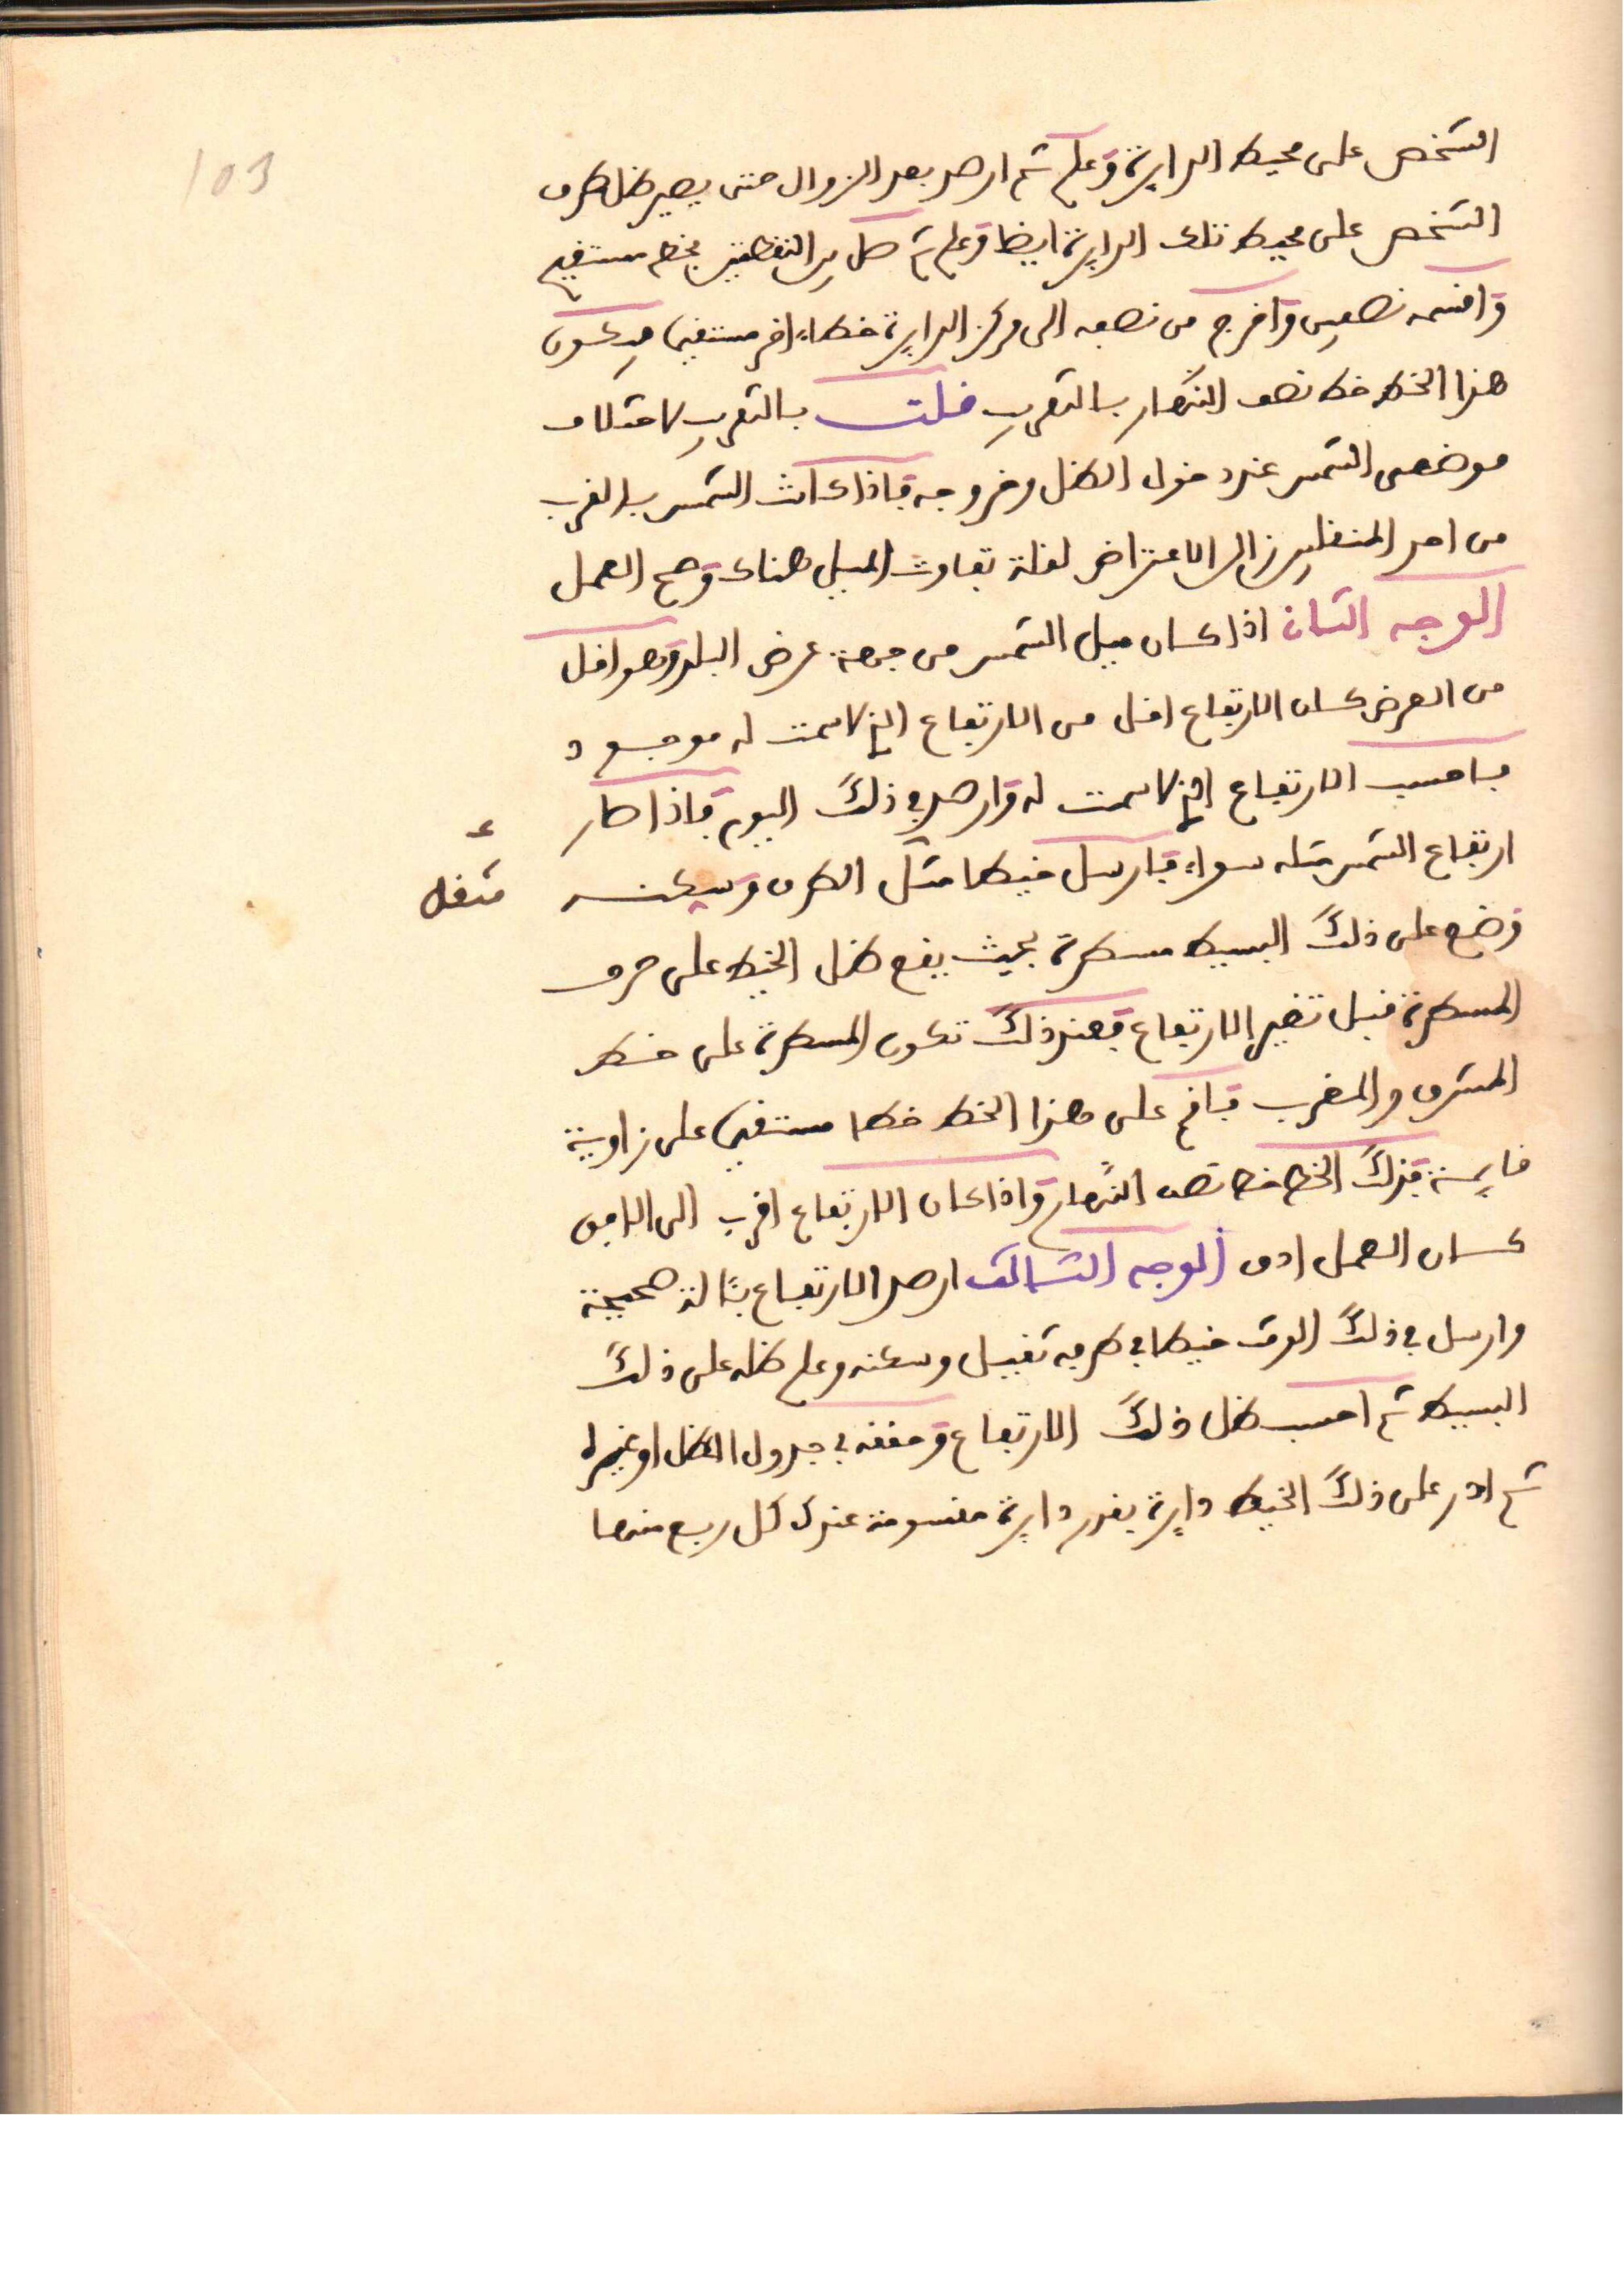 103
الشخص على محيط الدايرة وعلم ثم ارصد بعد الزوال حتى يصير ظل طرف
الشخص على محيط تلك الدايرة ايضا وعلم ثم صل بين النقطتين بخط مستقيم
واقسمه نصفين واخرج من نصفه الى مركز الدايرة خطا اخر مستقيما فيكون
هذا الخط خط نصف النهار بالتقريب قلت بالتقريب لاختلاف
موضعى الشمس عند دخول الظل وخروجه فاذا كانت الشمس بالقرب
من احد المنقلبين زال الاعتراض لقلة تفاوت الميل هناك وصح العمل
الوجه الثان اذا كان ميل الشمس من جهة عرض البلد وهو اقل
من العرض كان الارتفاع اقل من الارتفاع الذي لا سمت له موجود
فاحسب الارتفاع الذي لا سمت له وارصد في ذلك اليوم فاذا صار
ارتفاع الشمس مثله سواء فارسل خيطا مثقل الطرف وسكنه
مثقل
وضع على ذلك البسيط مسطرة بحيث يقع ظل الخيط على حرف
المسطرة قبل تغير الارتفاع فعند ذلك تكون المسطرة على خط
المشرق والمغرب فاقم على هذا الخط خطا مستقيما على زاوية
قايمة فذلك الخط خط نصف النهار واذا كان الارتفاع اقرب الى الافق
كان العمل ادق الوجه الثالث ارصد الارتفاع بئالة صحيحة
وارسل في ذلك الوقت خيطا في طرفه ثقيل وسكنه وعلم ظله على ذلك
البسيط ثم احسب ظل ذلك الارتفاع وحققه في جدول الظل او غيره
ثم ادر على ذلك الخيط دايرة بقدر دايرة مقسومة عندك كل ربع منها